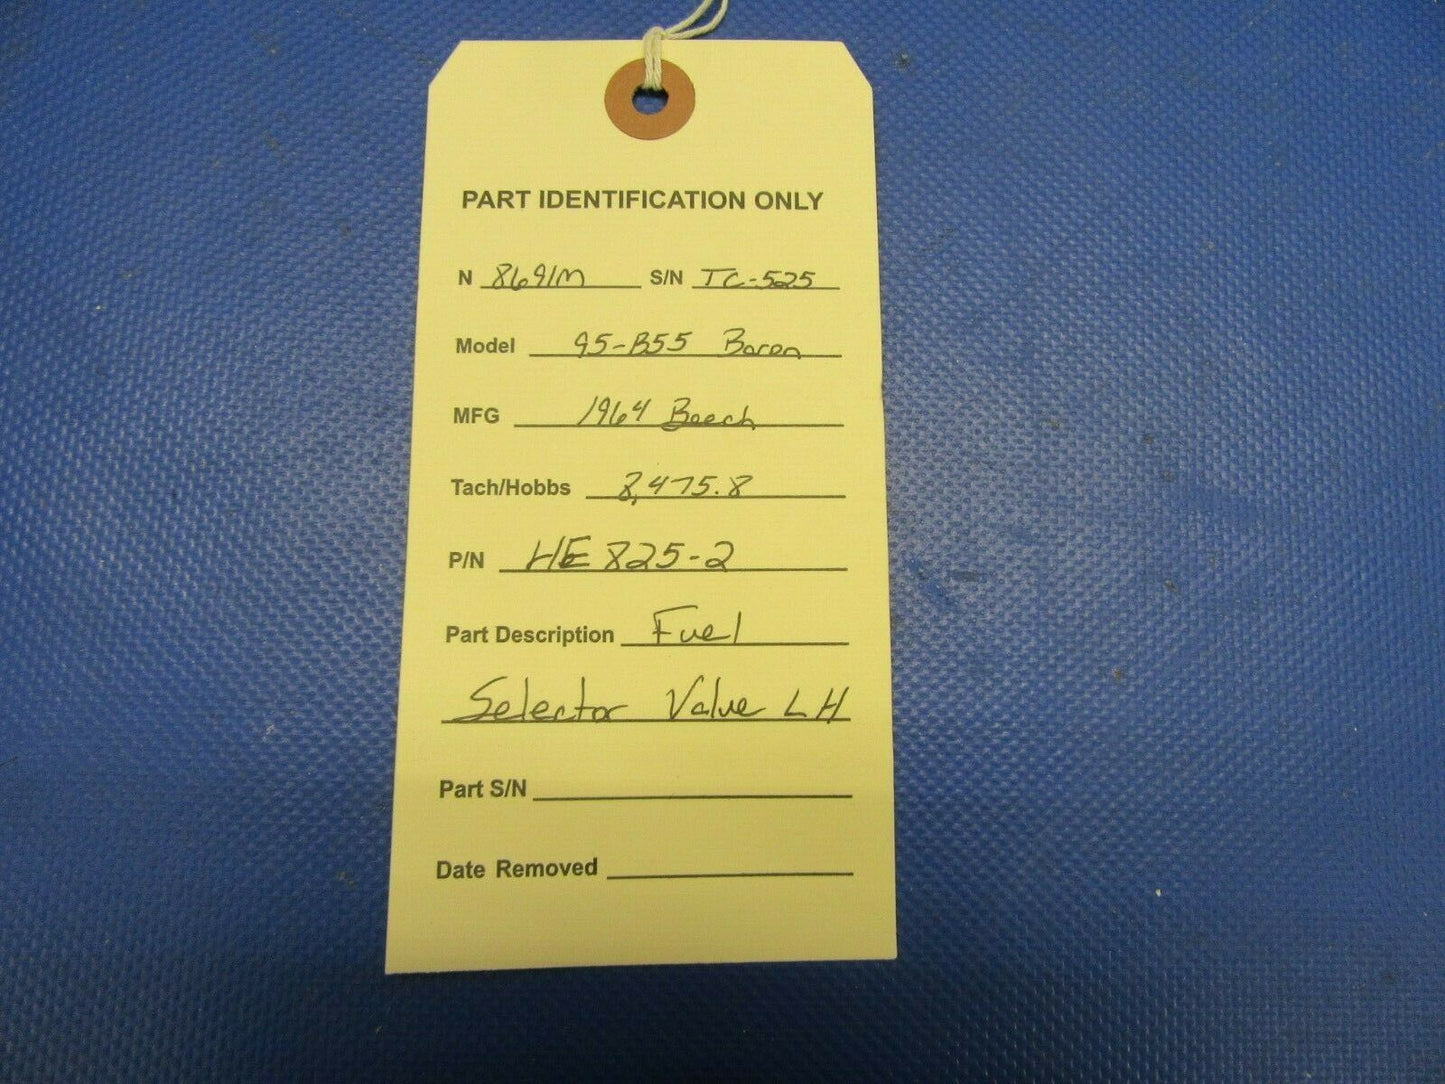 PART IDENTIFICATION ONLY
N 8691M S/N TC-525
Model 95-B55 Baron
MFG 1964 Beech
Tach/Hobbs 8,475.8
P/N HE 825-2
Part Description Fuel
Selector Valve LH
Part S/N
Date Removed